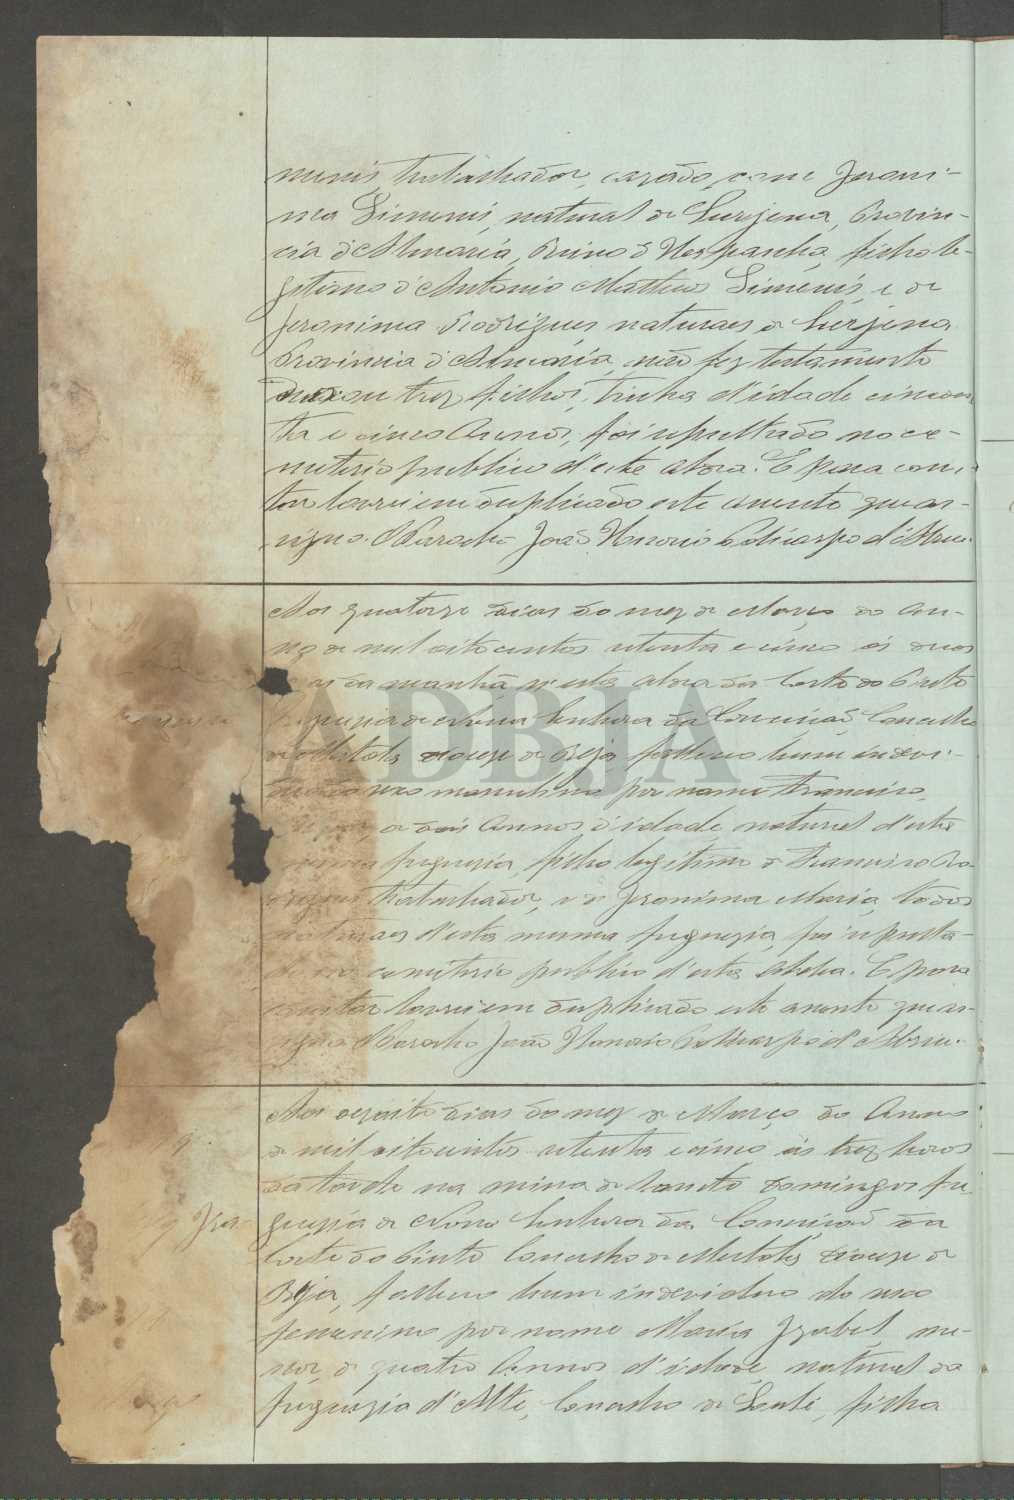 menis, trabalhador, cazado com Jeroni-
mca Simenis, natural de Surgena, Provin-
cia d'Almaria, Reino d'Hespanha, filho le-
gitomo d'Antonio Matheus Simenis, e de
Jeronima Rodrigues naturaes de Surgena
Provincia d'Almaria, não fez testamento
deixou trez filhos, tinha d'idade cincoen
ta e cinco Annos, foi sepultado no ce-
miterio publico d'esta aldea. E para cons-
tar lavrei em duplicado este acento que as-
signo. O Parocho João Honorio Policarpo d'Abreu.
Aos quatorze dias do mez de Março do An-
no de mil oito centos setenta e cinco ás duas
as da manhã n'esta aldea da Corte do Pinto
freguezia de Nossa Senhora da Conceicaõ, Concelho
de Mertola diocese de Beja falleceo hum indevi-
duo do sexo masculino por nome Francisco,
de dois Annos d'idade, natural d'esta
mesma freguezia, filho legitimo de Francisco Ro-
drigues trabalhador, e de Jeronima Maria, todos
naturaes d'esta mesma freguezia, foi sepulta-
do no cemiterio publico d'esta Aldea. E para
constar lavrei em duplicado este acento que as-
signo O Parocho João Honorio Policarpo d'Abreu.
Aos dezoito dias do mez de Março do Anno
de mil oito centos setenta e cinco ás trez horas
da tarde na mina de Sancto Domingos fre
guezia de Nossa Senhora da Conceicaõ da
Corte do Pinto Concelho de Mertola, diocese de
Beja, falleceo hum indeviduo do sexo
femenino por nome Maria Izabel, me-
nor, de quatro Annos d'idade, natural da
freguezia d'Alte, Concelho de Loulé, filha
ADBJA